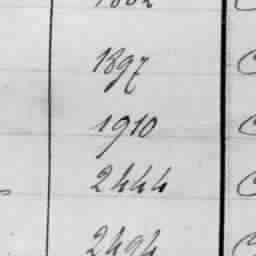 1897
1910
2444
2494